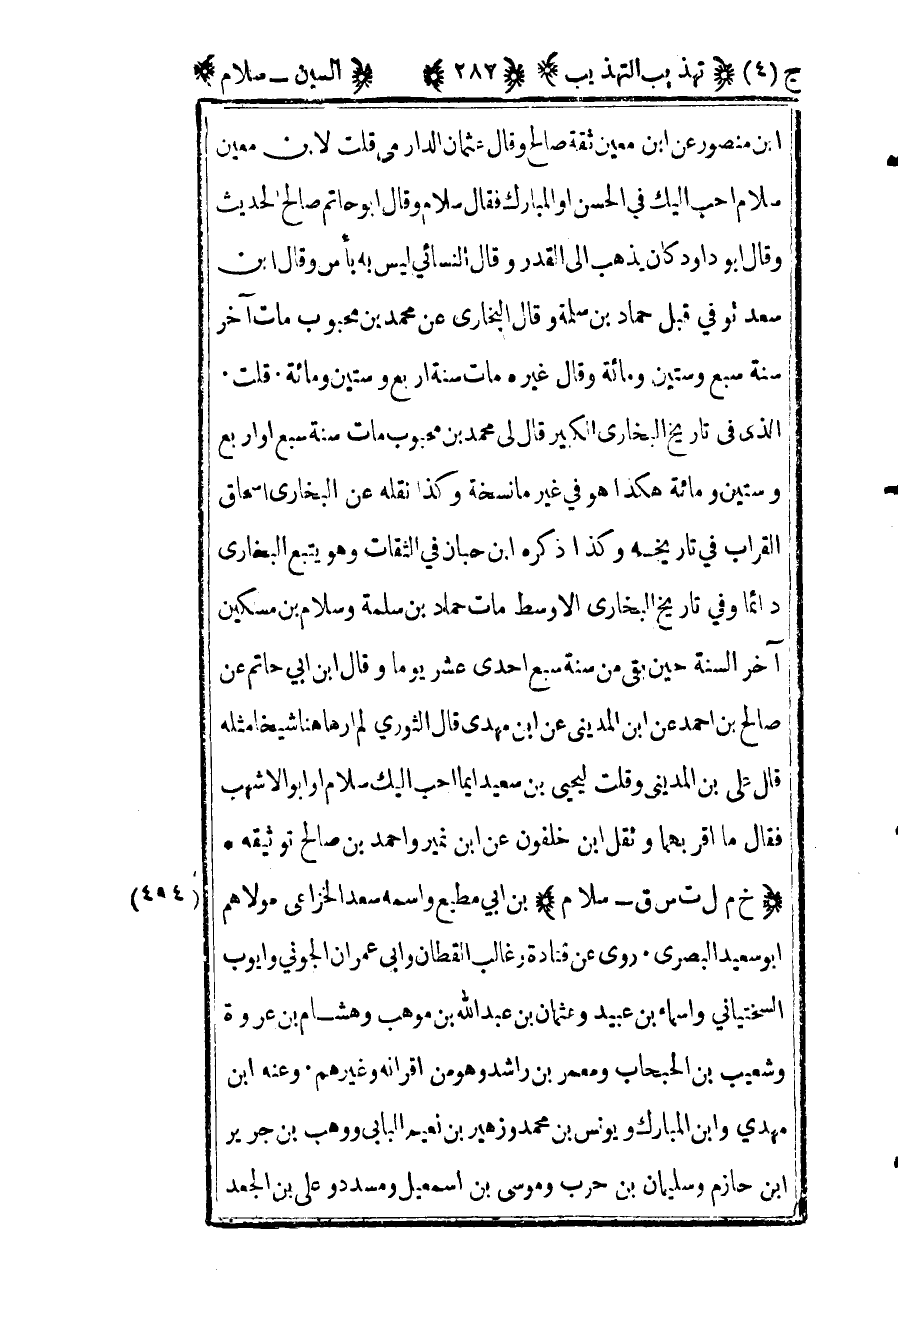 ج (٤) ﴿ تهذيب التهذيب ﴾ ﴿ ٢٨٧ ﴾ ﴿ السين ـ سلام ﴾
ابن منصور عن ابن معين ثقة صالح وقال عثمان الدارمي قلت لابن معين
سلام احب اليك في الحسن او المبارك فقال سلام وقال ابو حاتم صالح الحديث
وقال ابو داود كان يذهب الى القدر وقال النسائي ليس به بأس وقال ابن
سعد توفي قبل حماد بن سلمة وقال البخارى عن محمد بن محبوب مات آخر
سنة سبع وستين ومائة وقال غيره مات سنة اربع وستين ومائة ٠ قلت ٠
الذى فى تاريخ البخارى الكبير قال لى محمد بن محبوب مات سنة سبع او اربع
وستين ومائة هكذا هو في غير ما نسخة وكذا نقله عن البخارى اسحاق
القراب في تاريخه وكذا ذكره ابن حبان في الثقات وهو يتبع البخارى
دائما وفي تاريخ البخارى الاوسط مات حماد بن سلمة وسلام بن مسكين
آخر السنة حين بقى من سنة سبع احدى عشر يوما وقال ابن ابي حاتم عن
صالح بن احمد عن ابن المدينى عن ابن مهدى قال الثوري لم ار هاهنا شيخا مثله
قال على بن المدينى وقلت ليحيى بن سعيد ايما احب اليك سلام او ابو الاشهب
فقال ما اقربهما ونقل ابن خلفون عن ابن نمير واحمد بن صالح توثيقه ٠
﴿ خ م ل ت س ق ـ سلام ﴾ بن ابي مطيع واسمه سعد الخزاعى مولاهم (٤٩٤)
ابو سعيد البصرى ٠ روى عن قتادة وغالب القطان وابى عمران الجوني وايوب
السختياني واسماء بن عبيد وعثمان بن عبد الله بن موهب وهشام بن عروة
وشعيب بن الحبحاب ومعمر بن راشد وهو من اقرانه وغيرهم ٠ وعنه ابن
مهدي وابن المبارك ويونس بن محمد وزهير بن نعيم البابي ووهب بن جرير
ابن حازم وسليمان بن حرب وموسى بن اسمعيل ومسدد وعلى بن الجعد